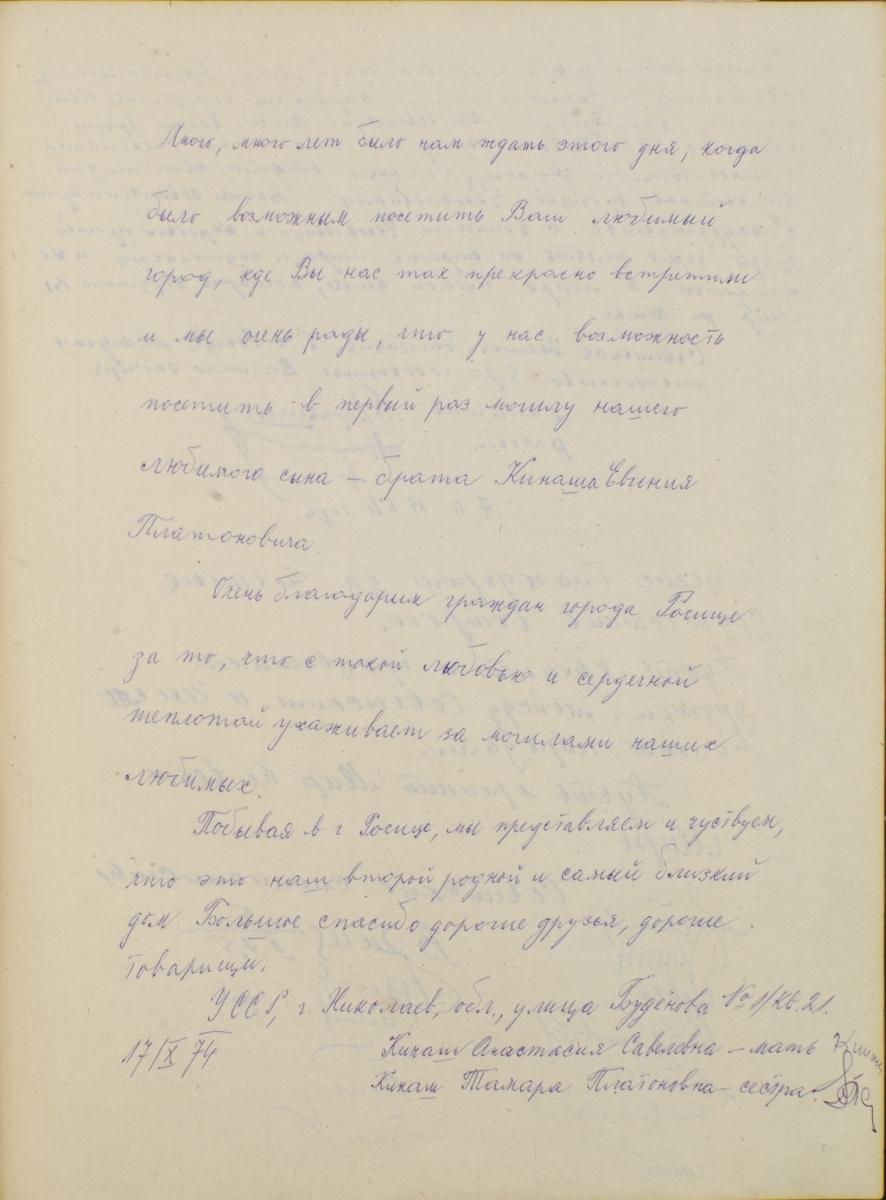 Много, много лет было нам ждать этого дня, когда
было возможным посетить Ваш любимый
город, где Вы нас так прекрасно встретили
и мы очень рады, что у нас возможность
посетить в первый раз могилу нашего
любимого сына – брата Кинаша Евгения
Платоновича.
Очень благодарим граждан города Росице
за то, что с такой любовью и сердечной
теплотай ухаживает за могилами наших
любимых.
Побывая в г. Росице, мы представляем и чуствуем,
что это наш второй родной и самый близкий
дом. Большое спасибо дорогие друзья, дорогие
товарищи.
УССР, г. Николаев, обл., улица Будёнова № 1/кв. 21.
17/X 74
Кинаш Анастасия Савелевна – мать
Кинаш Тамара Платоновна – сестра.